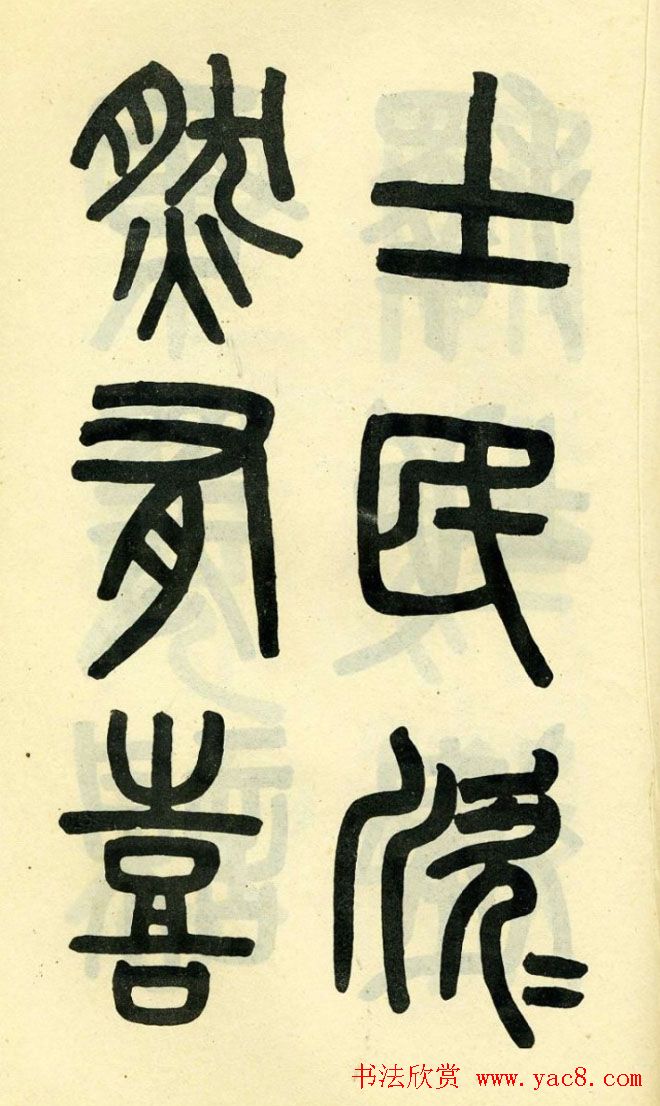 士民欣〻
然有喜
书法欣赏 www.yac8.com